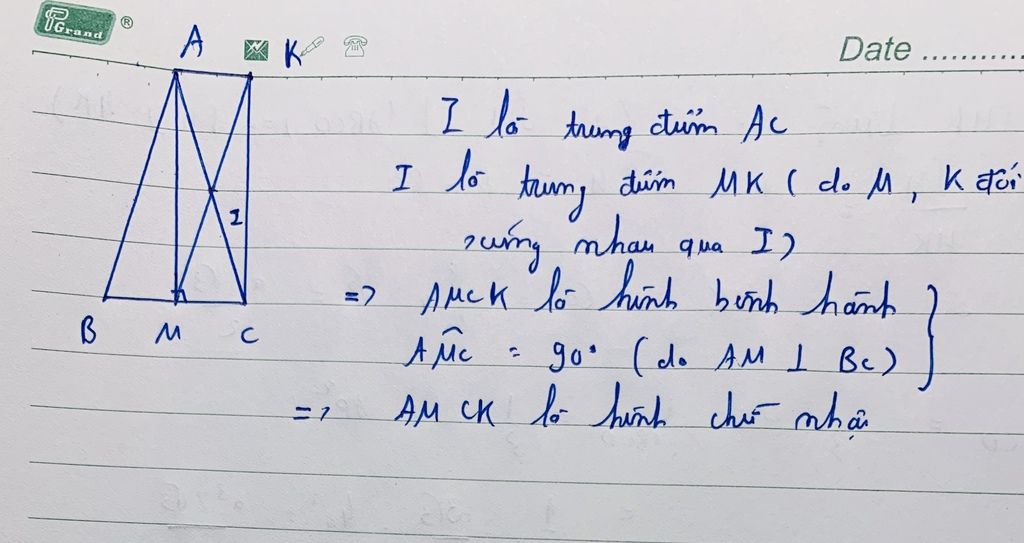 Grand ®
A K Date ............
I là trung điểm AC
I là trung điểm MK ( do M, K đối
xứng nhau qua I )
I
=> AMCK là hình bình hành
B M C
AMC = 90° ( do AM ⊥ BC )
=> AMCK là hình chữ nhật